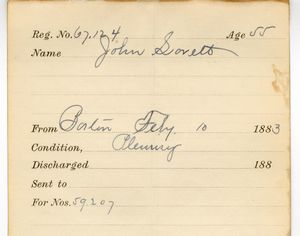 Reg. No. 67,124 Age 55
Name John Lovett
From Boston Feby 10 1883
Condition, Pleurisy
Discharged 188
Sent to
For Nos. 59207